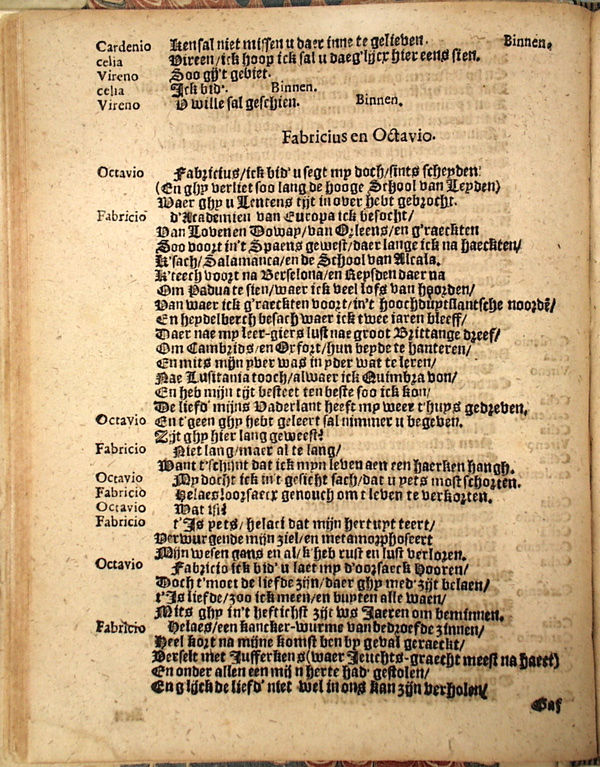 Cardenio Ken sal niet missen u daer inne te gelieven. Binnen.
celia Vireen/ick hoop ick sal u daeg'lijcx hier eens sien.
Vireno Soo ghy't gebiet.
celia Ick bid'. Binnen.
Vireno V wille sal geschien. Binnen.
Fabricius en Octavio.
Octavio Fabricius/ick bid' u segt my doch/sints scheyden
(En ghy verliet soo lang de hooge School van Leyden)
Waer ghy u Lentens tijt in over hebt gebrocht.
Fabricio d'Academien van Europa ick besocht/
Van Loven en Doway/van Orleens/en g'raeckten
Soo voort in't Spaens gewest/daer lange ick na haeckten/
K'sach/Salamanca/en de School van Alcala.
K'teech voort na Berselona/en Repsden daer na
Om Padua te sien/waer ick veel lofs van hoorden/
Van waer ick g'raeckten voort/in't hoochduytslantsche noordē/
En heydelberch besach waer ick twee iaren bleeff/
Daer nae my leer-giers lust nae groot Brittange dreef/
Om Cambrids/en Oxfort/hun beyde te hanteren/
En mits mijn yver was in yder wat te leren/
Nae Lusitania tooch/alwaer ick Quimbra von/
En heb mijn tijt besteet ten beste soo ick kon/
De liefd' mijns Vaderlant heeft my weer t'huys gedreven.
Octavio En t'geen ghy hebt geleert sal nimmer u begeven.
Zijt ghy hier lang geweest?
Fabricio Niet lang/maer al te lang/
Want t'schijnt dat ick mijn leven aen een haerken hangh.
Octavio My docht ick in't gesicht sach/dat u yets most schorten.
Fabricio Helaes! oorsaecx genouch om t leven te verkorten.
Octavio Wat ist?
Fabricio t'Is yets/helaci dat mijn hert uyt teert/
Verwurgende mijn ziel/en metamorphoseert
Mijn wesen gans en al/k'heb rust en lust verloren.
Octavio Fabricio ick bid' u laet my d'oorsaeck hooren/
Doch t'moet de liefde zijn/daer ghy med' zijt belaen/
t'Is liefde/zoo ick meen/en buyten alle waen/
Mits ghy in't heftichst zijt ws Jaeren om beminnen.
Fabricio Helaes/een kancker-wurme van bedroefde zinnen/
Heel kort na mijne komst ben by geval geraeckt/
Verselt met Jufferkens (waer Jeuchts-graecht meest na haect)
En onder allen een mijn herte had' gestolen/
En g'lijck de liefd' niet wel in ons kan zijn verholen/
Gaf